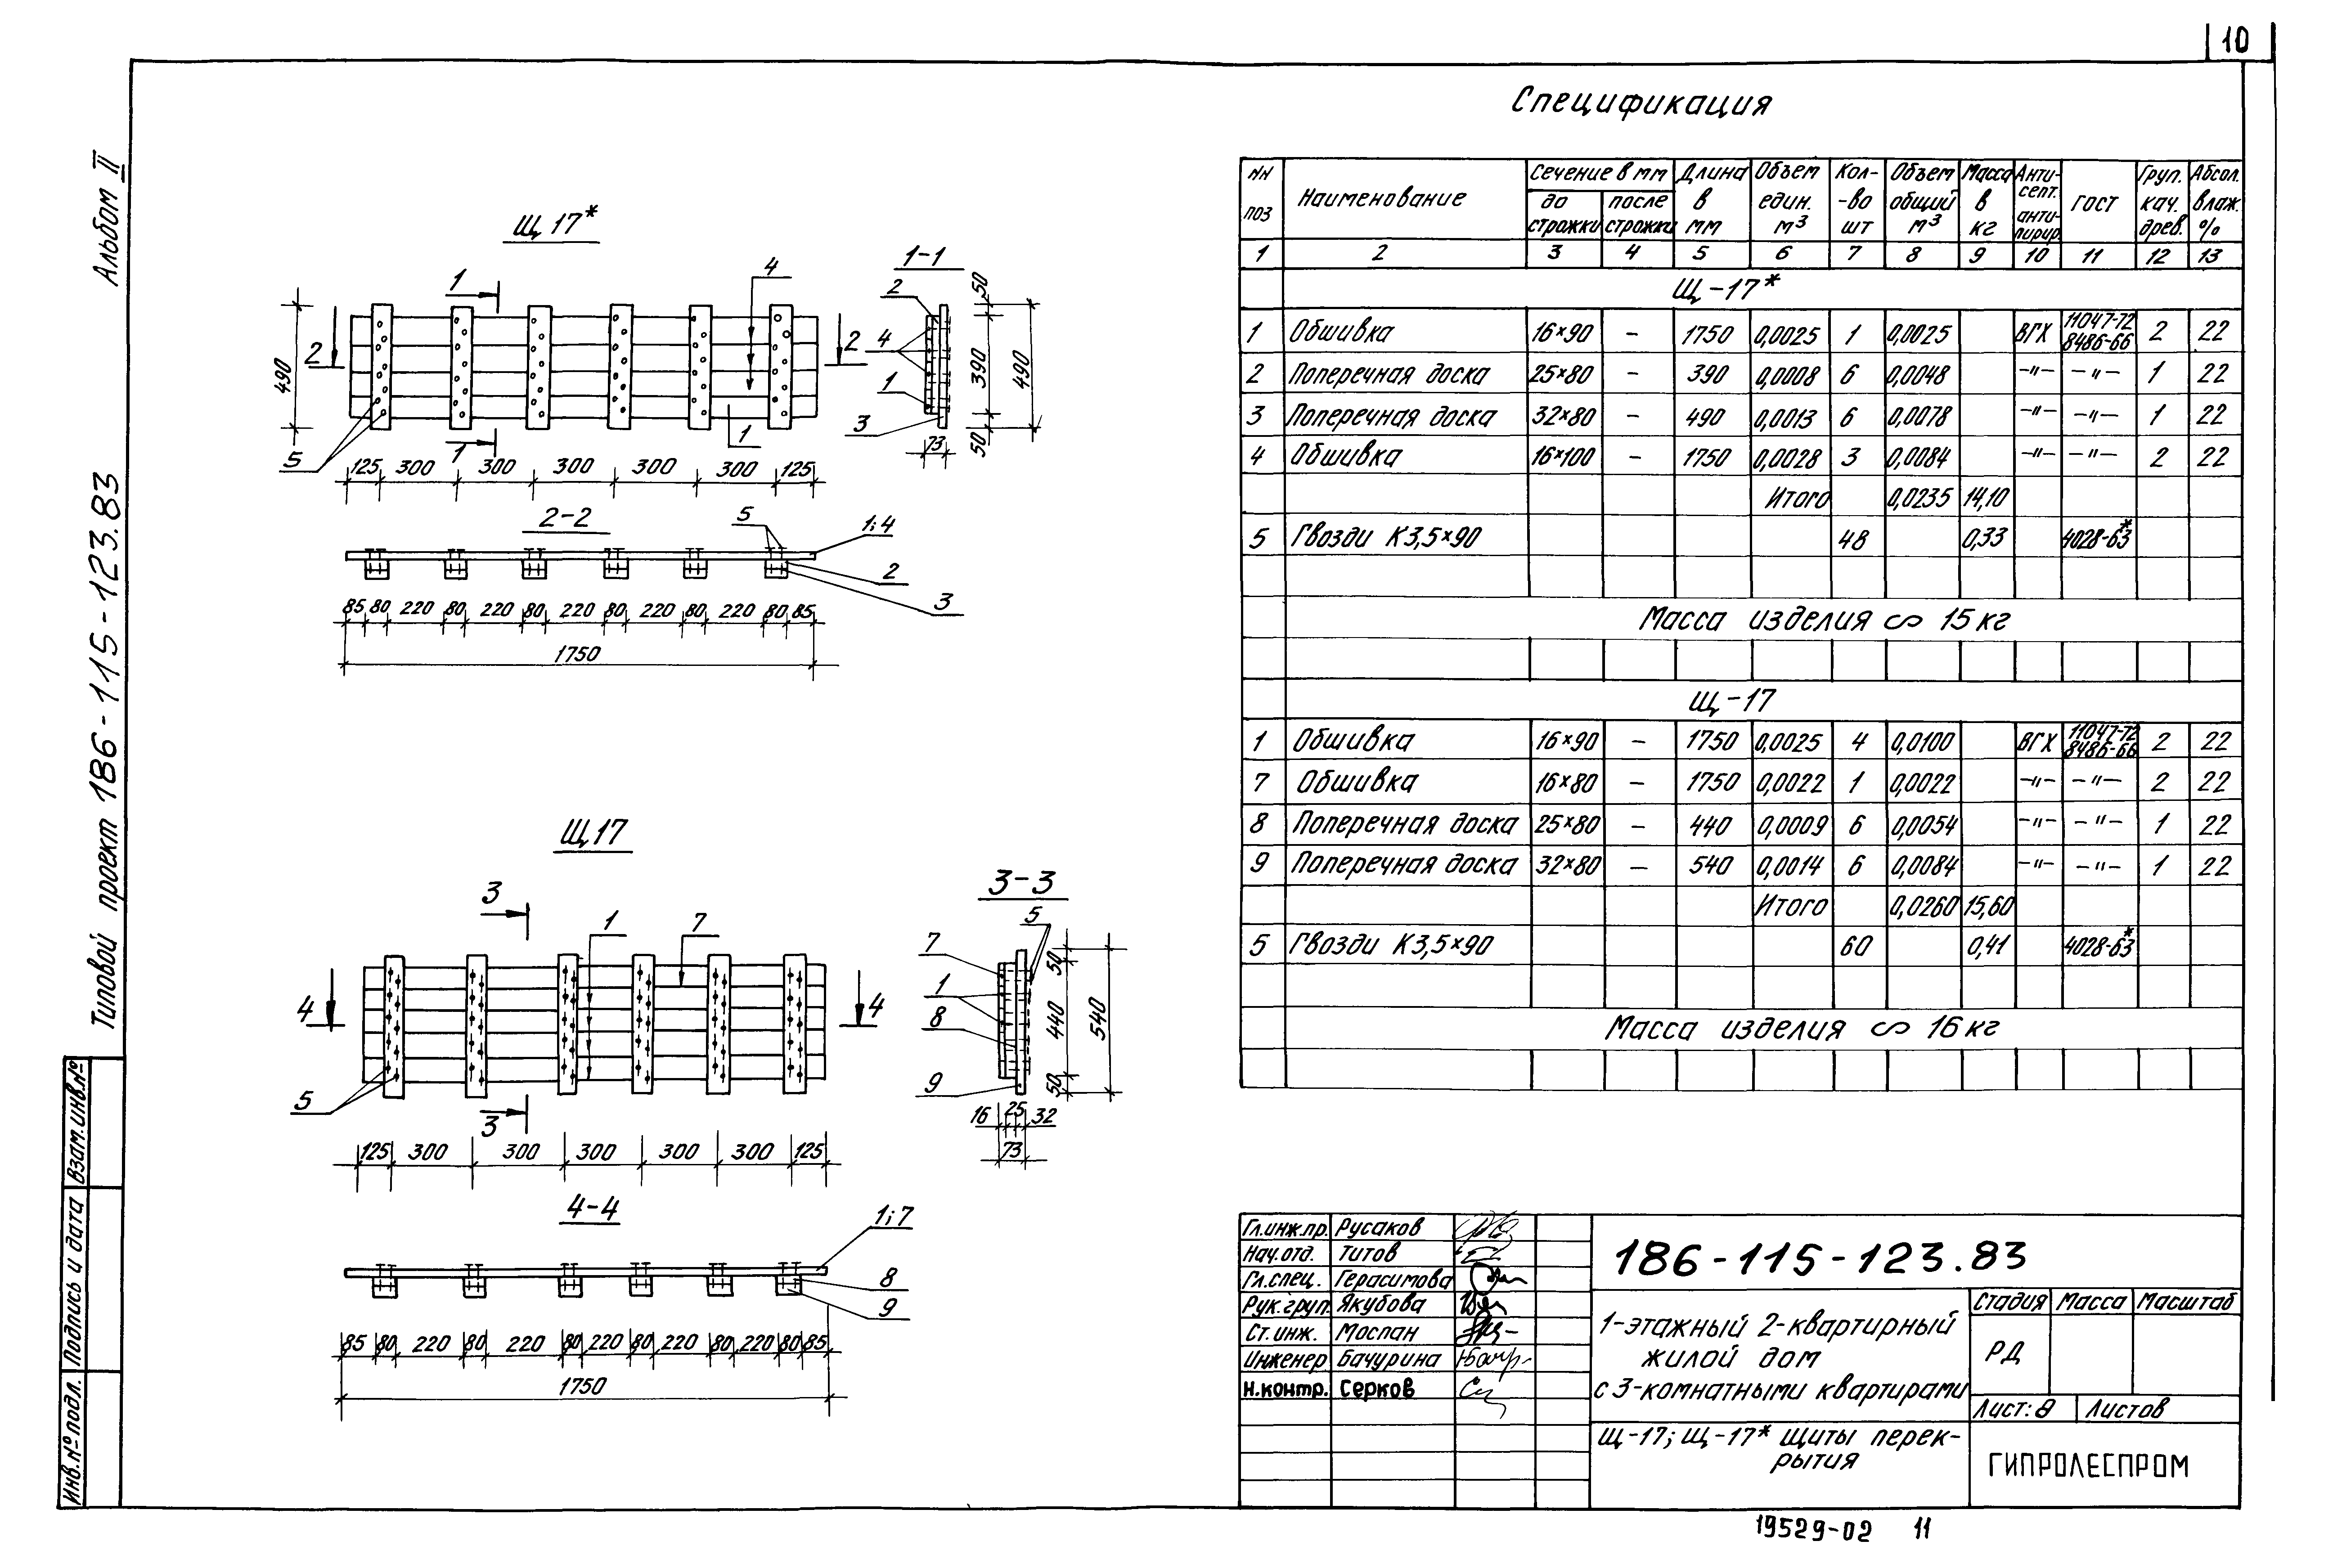 10
Альбом II
Типовой проект 186-115-123.83
Взам.инв.№
Подпись и дата
Инв.№ подл.
Щ 17*
1
4
490
2
2
5
1
1
125 300 300 300 300 300 125
1-1
2
4
1
3
73
50
390
50
490
2-2
5
1;4
2
3
85 80 220 80 220 80 220 80 220 80 220 80 85
1750
Щ 17
3
1
7
4
4
5
3
125 300 300 300 300 300 125
3-3
5
7
1
8
9
50
440
50
540
16 25 32
73
4-4
1;7
8
9
85 80 220 80 220 80 220 80 220 80 220 80 85
1750
Спецификация
NN поз | Наименование | Сечение в мм до строжки | после строжки | Длина в мм | Объем един. м³ | Кол-во шт | Объем общий м³ | Масса в кг | Анти-септ. анти-пирир. | ГОСТ | Груп. кач. древ. | Абсол. влаж. %
1 2 3 4 5 6 7 8 9 10 11 12 13
Щ-17*
1 Обшивка 16×90 – 1750 0,0025 1 0,0025 ВГХ 11047-72 8486-66 2 22
2 Поперечная доска 25×80 – 390 0,0008 6 0,0048 –"– –"– 1 22
3 Поперечная доска 32×80 – 490 0,0013 6 0,0078 –"– –"– 1 22
4 Обшивка 16×100 – 1750 0,0028 3 0,0084 –"– –"– 2 22
Итого 0,0235 14,10
5 Гвозди К3,5×90 48 0,33 4028-63*
Масса изделия ∽ 15 кг
Щ-17
1 Обшивка 16×90 – 1750 0,0025 4 0,0100 ВГХ 11047-72 8486-66 2 22
7 Обшивка 16×80 – 1750 0,0022 1 0,0022 –"– –"– 2 22
8 Поперечная доска 25×80 – 440 0,0009 6 0,0054 –"– –"– 1 22
9 Поперечная доска 32×80 – 540 0,0014 6 0,0084 –"– –"– 1 22
Итого 0,0260 15,60
5 Гвозди К3,5×90 60 0,41 4028-63*
Масса изделия ∽ 16 кг
Гл.инж.пр. Русаков
Нач.отд. Титов
Гл.спец. Герасимова
Рук.груп. Якубова
Ст.инж. Моспан
Инженер Бачурина
Н.контр. Серков
186-115-123.83
1-этажный 2-квартирный
жилой дом
с 3-комнатными квартирами
Стадия Масса Масштаб
РД
Лист: 8 Листов
Щ-17; Щ-17* щиты перек-
рытия
ГИПРОЛЕСПРОМ
19529-02 11